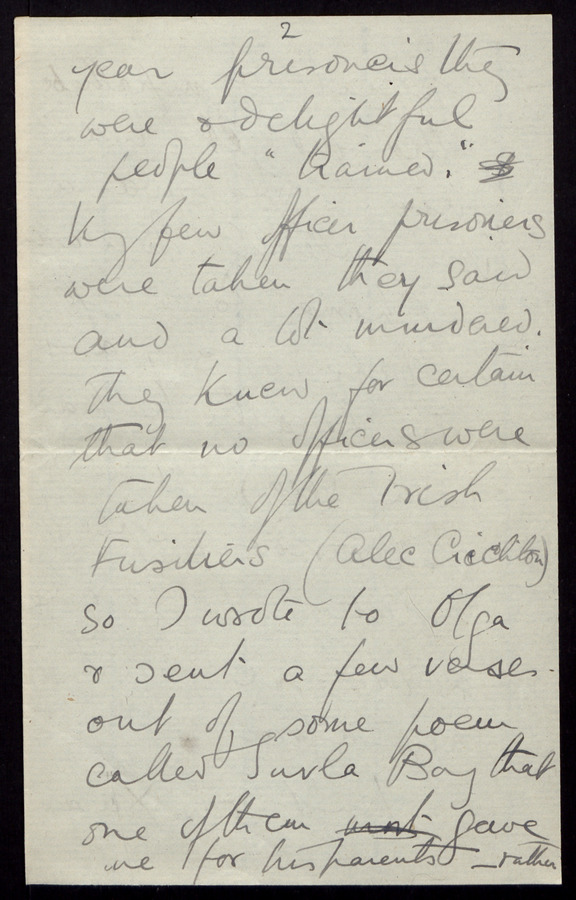 2
year prisoners they
were & delightful
people "trained."
V. few officer prisoners
were taken they said
and a lot murdered.
They knew for certain
that no officers were
taken of the Irish
Fusiliers (Alec Crichton)
so I wrote to Olga
& sent a few verses
out of some poem
called Suvla Bay that
one of them wrote gave
me for his parents – rather